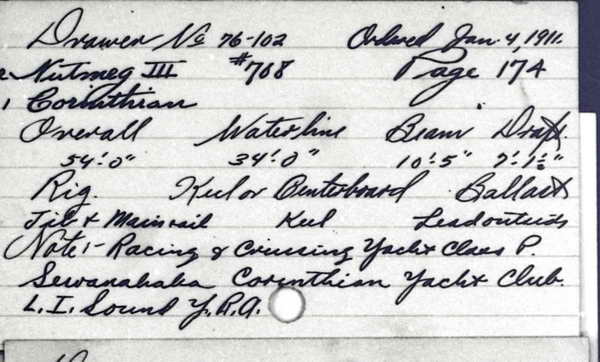 Drawer No 76-102 Ordered Jan. 4, 1911.
Nutmeg III #768 Page 174
Corinthian
Overall Waterline Beam Draft
54'-0" 34'-0" 10'-5" 7'-1½"
Rig. Keel or Centerboard Ballast
Jib & Mainsail Keel Lead outside
Note:- Racing & Cruising Yacht Class P.
Sewanahaka Corinthian Yacht Club.
L.I. Sound Y.R.A.